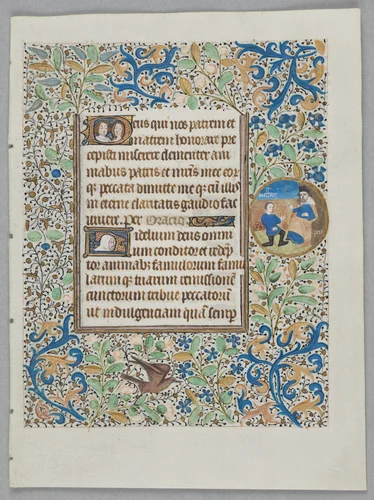 Deus qui nos patrem et
matrem honorare pre
cepisti miserere clementer ani
mabus patris et mris mee eor
q; peccata dimitte me q; cū illis
in eterne claritatis gaudio fac
vivere. Per Oracio.
Fidelium deus omni
um conditor et redēp
tor animab; famulorum famu
larum q; tuarum remissionē
cunctorum tribue peccatorū
ut indulgenciam quā semp